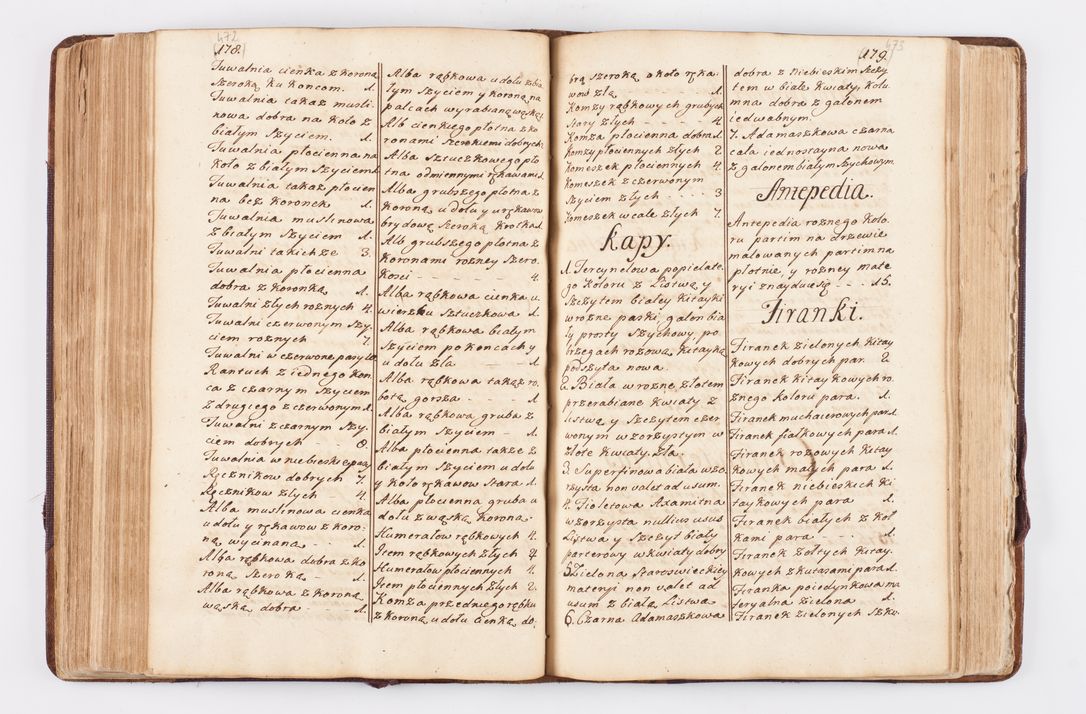 472
178.
Tuwalnia cienka z koroną
szeroką ku koncom. 1.
Tuwalnia takaż musli-
nowa dobra na koło z
białym szyciem. 1.
Tuwalnia płocienna na
koło z białym szyciem 1.
Tuwalnia takaż płocien
na bez koronek 1.
Tuwalnia muslinowa
z białym szyciem 1.
Tuwalni takichże 3.
Tuwalnia płocienna
dobra z koronką 1.
Tuwalni złych roznych 4.
Tuwalni czerwonym szy-
ciem roznych 7.
Tuwalni w czerwone pasy
Rantuch z iednego kon
ca z czarnym szyciem
z drugiego z czerwonym 1.
Tuwalni z czarnym szy-
ciem dobrych - - 8.
Tuwalnia w niebieskie pasy
Ręcznikow dobrych 7.
Ręcznikow złych 4.
Alba muslinowa cienka
u dołu y rękawow z koro-
ną wycinana - 1.
Alba rąbkowa dobra z ko
roną szeroką - 1.
Alba rąbkowa z koroną
wąską dobra - 1.
Alba rąbkowa u dołu z bia
łym szyciem y koroną na
palcach wyrabianą wąską
Alb cienkiego płotna z ko
ronami szerokiemi dobrych
Alba sztuczkowego pło
tna odmiennymi rękawami 1.
Alba grubszego płotna z
koroną u dołu y u rękawow
brydową szeroką krotka 1.
Alb grubszego płotna z
koronami rozney szero
kosci - - - 4.
Alba rąbkowa cienka u
wierzchu sztuczkowa 1.
Alba rąbkowa białym
szyciem po koncach y
u dołu zła - 1.
Alba rąbkowa takąż ro
botą gorsza - 1.
Alba rąbkowa gruba z
białym szyciem - 1.
Alba płocienna także z
białym szyciem u dołu
y koło rękawow stara 1.
Alba płocienna gruba u
dołu z wąską koroną.
Humerałow rąbkowych 4.
Item rąbkowych złych 4
Humerałow płociennych 4.
Item płociennych złych 2.
Komża przedniego rąbku
z koroną u dołu cienką do-
473
179.
brą szeroką około ręka-
wow zła 1.
Komży rąbkowych grubych
stary złych - - - 4.
Komża płocienna dobra 1.
Komży płociennych złych 2
Komeszek płociennych 4.
Komeszek z czerwonym
szyciem złych - - 3
Komeszek wcale złych 7.
Kapy.
1. Tercynelowa popielate
go koloru z Listwą y
szczytem białey kitayki
w rozne paski, galon bia
ły prosty szychowy, po
brzegach rozową kitayką
podszyta nowa.
2. Biała w rozne złotem
przerabiane kwiaty z
listwą y szczytem czer
wonym wzorzystym w
złote kwiaty, zła.
3. Superfinowa biała wzo
rzysta non valet ad usum.
4. Fioletowa Axamitna
wzorzysta nullius usus
Listwa y szczyt biały
parterowy w kwiaty dobry
5. Zielona staroswieckiey
materyi non valet ad
usum z białą Listwą
6. Czarna Adamaszkowa
dobra z niebieskim szczy
tem w białe kwiaty, kolu
mna dobra z galonem
iedwabnym.
7. Adamaszkowa czarna
cała iednostayna nowa
z galonem białym szychowym.
Antepedia.
Antepedia roznego kolo
ru partim na drzewie
malowanych partim na
płotnie, y rozney mate
ryi znayduie się - - - 15.
Firanki.
Firanek zielonych kitay
kowych dobrych par. 2.
Firanek kitaykowych ro
znego koloru para. 1.
Firanek muchaierowych par. 1.
Firanek fiałkowych para 1.
Firanek rozowych kitay
kowych małych para 1.
Firanek niebieskich ki
taykowych para 1.
Firanek białych z koł
kami para - - 1.
Firanek żołtych kitay-
kowych z kutasami para 1.
Firanka poiedynkowa ma
teryalna zielona 1.
Firanek zielonych szku-